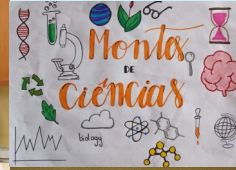 Montos
DE
Ciências
biology